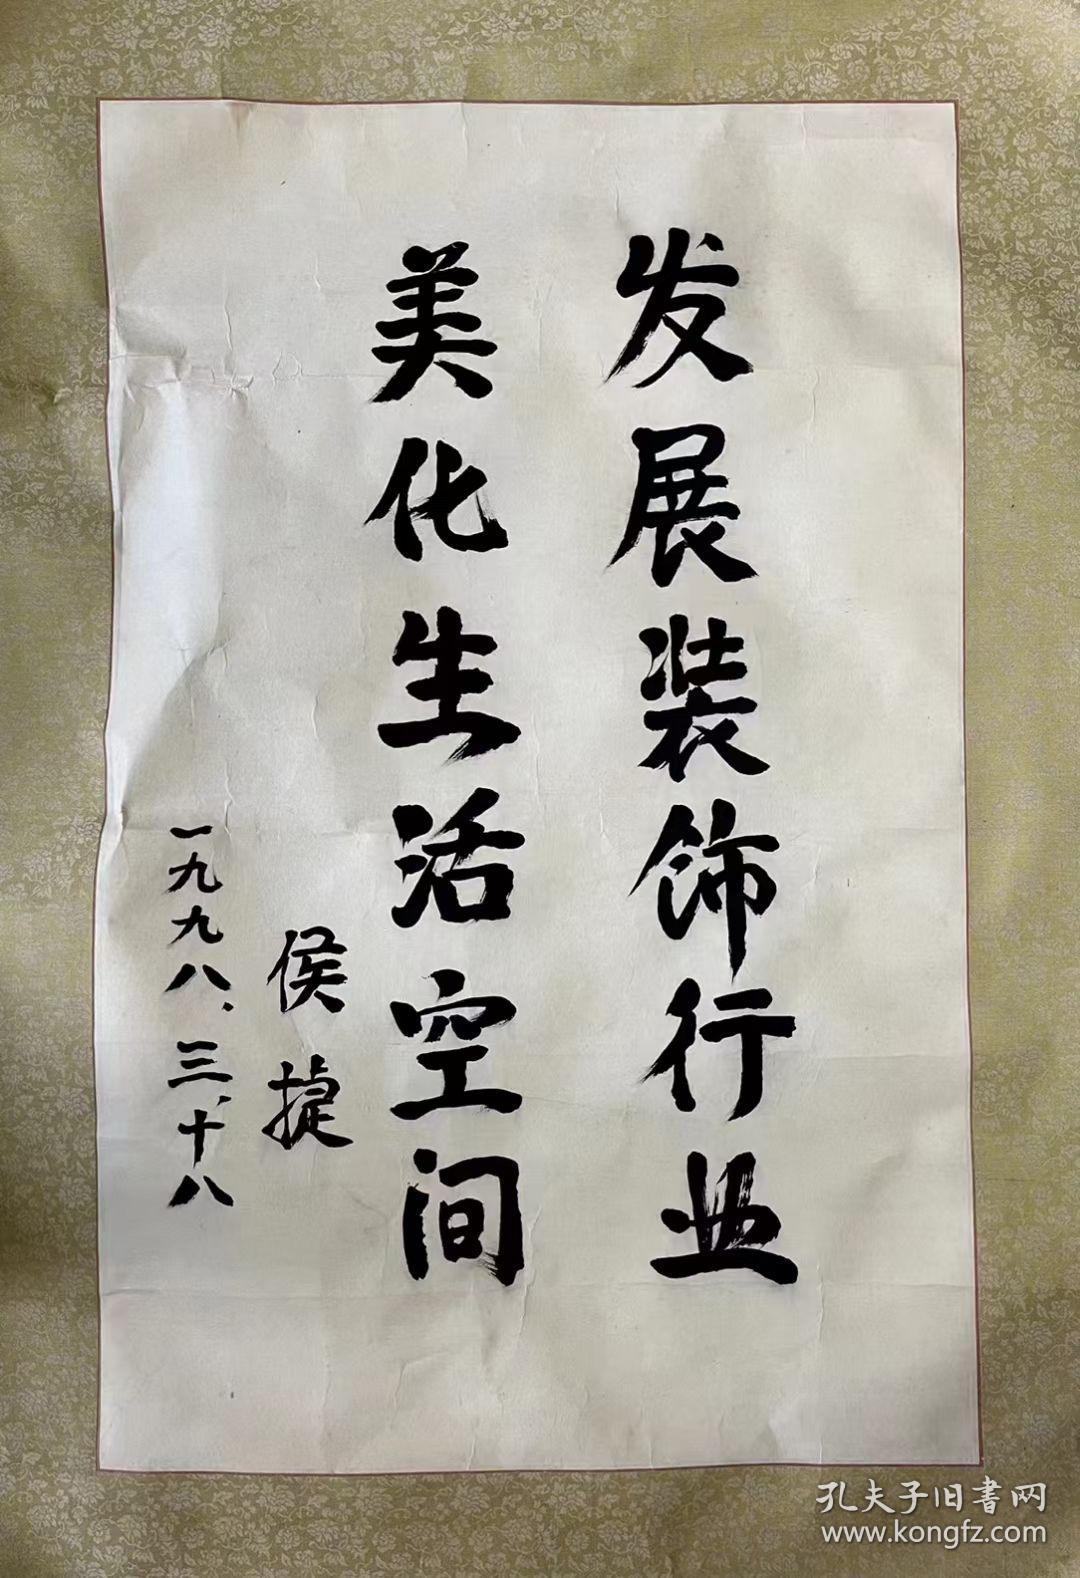 发展装饰行业
美化生活空间
侯捷
一九九八、三、十八
孔夫子旧书网
www.kongfz.com